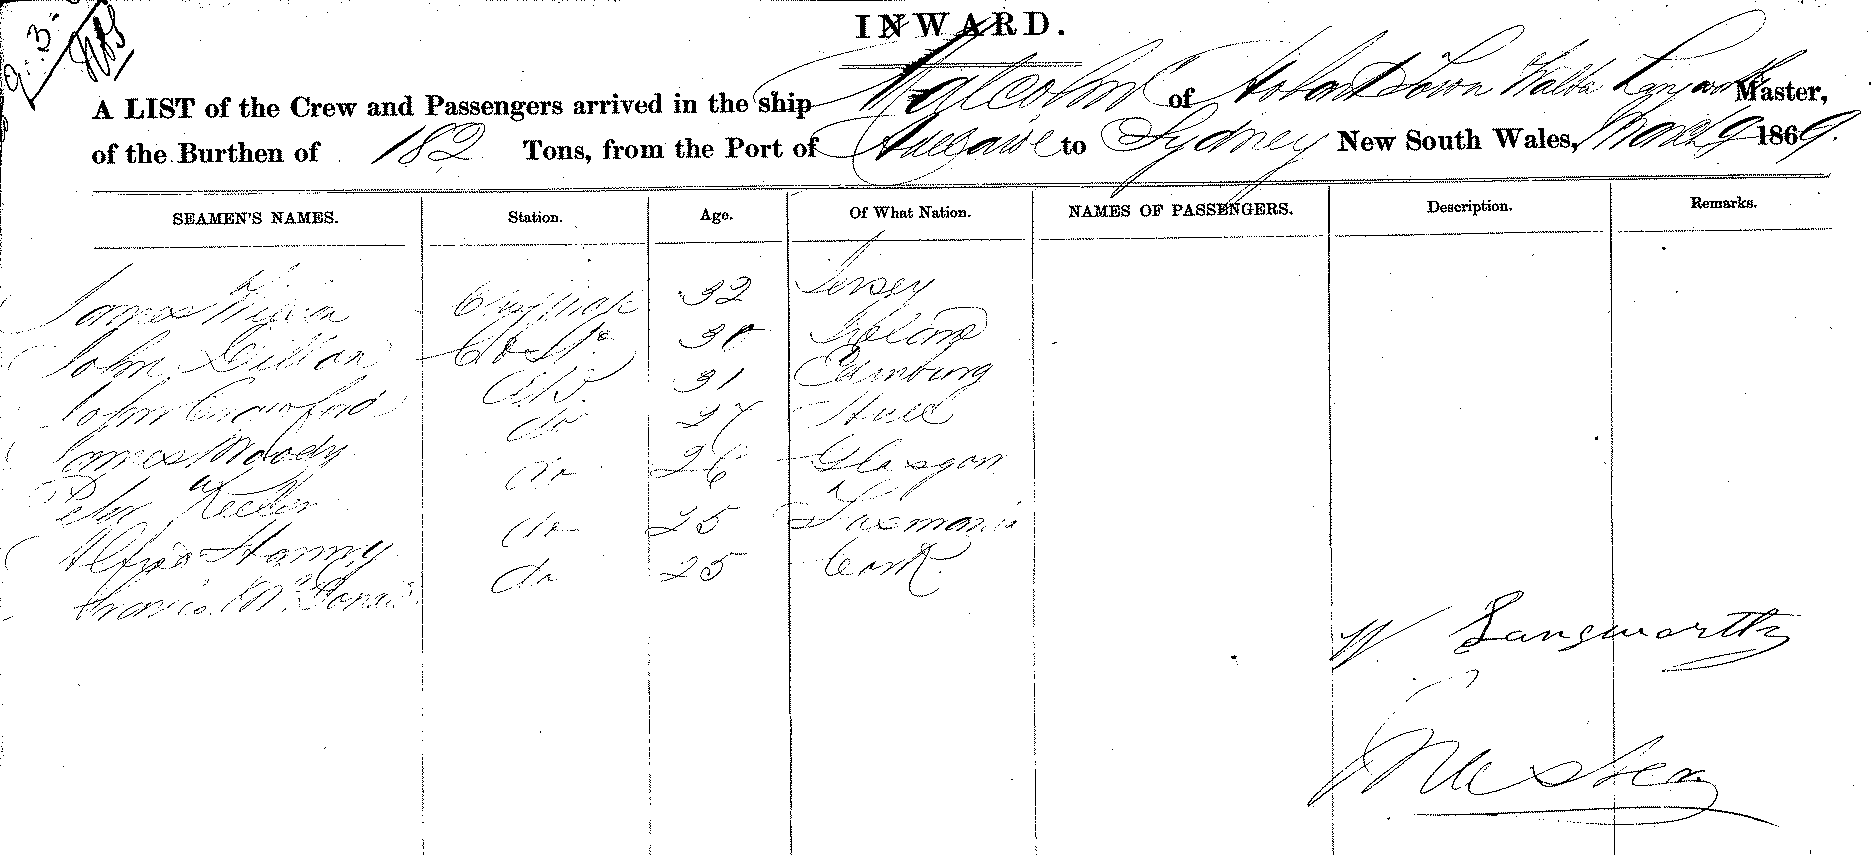 9.3.
INWARD.
A LIST of the Crew and Passengers arrived in the ship Malcolm of Hobart Town Walter Langworthy Master,
of the Burthen of 182 Tons, from the Port of to Sydney New South Wales, March 9 1869.
SEAMEN'S NAMES. Station. Age. Of What Nation. NAMES OF PASSENGERS. Description. Remarks.
James 32 Jersey
John 30 Ireland
John Crawford A.B. 31 Edinburg
James Moody do 27 Hull
Peter do 26 Glasgow
Alfred do 25 Tasmania
Francis do 25 Cork
W Langworthy